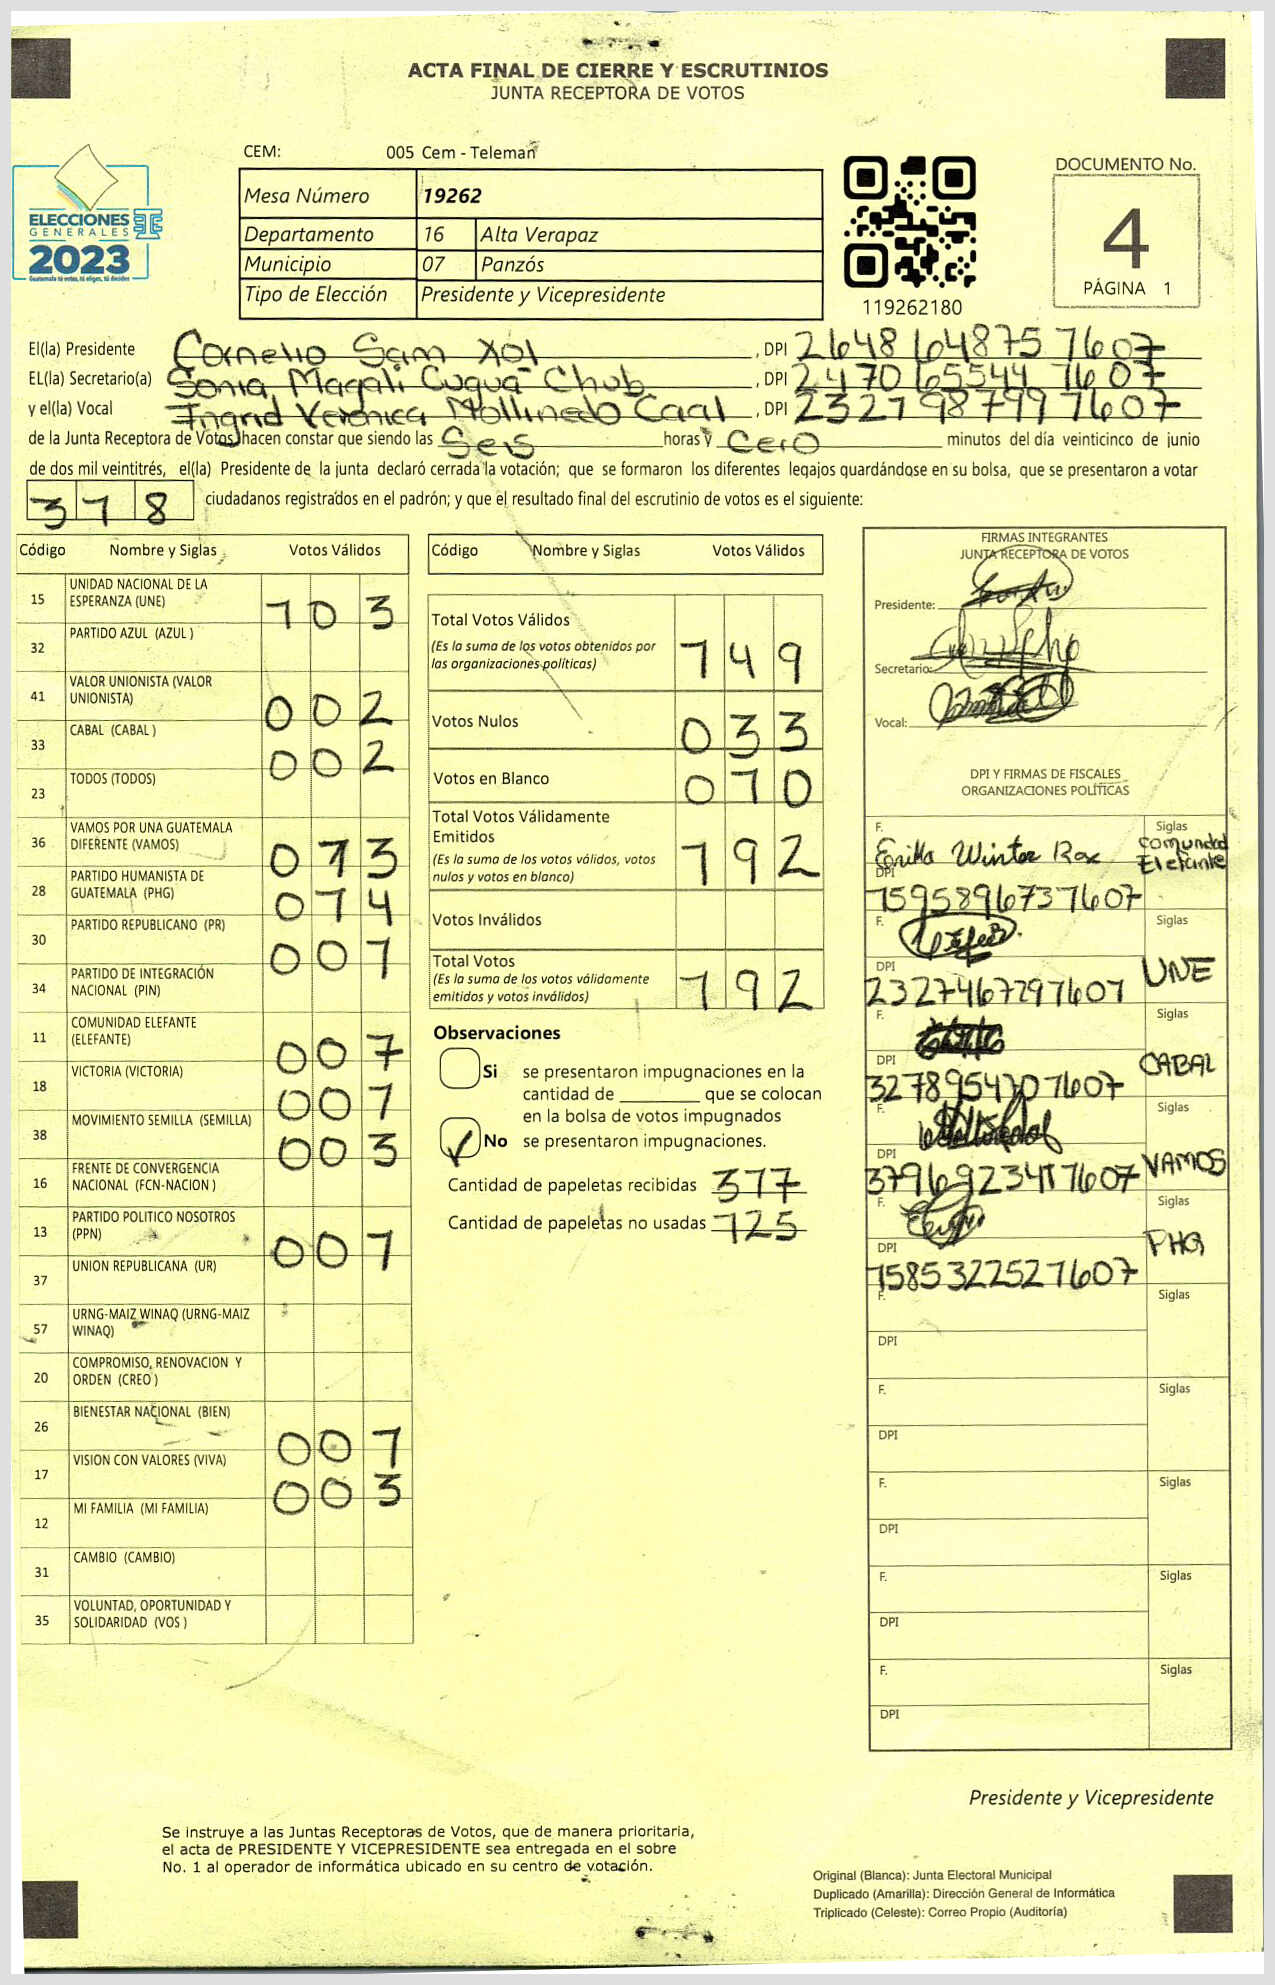 ACTA FINAL DE CIERRE Y ESCRUTINIOS
JUNTA RECEPTORA DE VOTOS
CEM: 005 Cem - Teleman
DOCUMENTO No.
4
PÁGINA 1
ELECCIONES
GENERALES
2023
Guatemala tú votas, tú eliges, tú decides
Mesa Número 19262
Departamento 16 Alta Verapaz
Municipio 07 Panzós
Tipo de Elección Presidente y Vicepresidente
119262180
El(la) Presidente Cornelio Sam Xol , DPI 2648 64875 1607
EL(la) Secretario(a) Sonia Magali Cuguá Chub , DPI 2410 65544 1607
y el(la) Vocal Ingrid Verónica Mollinedo Caal , DPI 2321 98199 1607
de la Junta Receptora de Votos, hacen constar que siendo las Seis horas y Cero minutos del día veinticinco de junio
de dos mil veintitrés, el(la) Presidente de la junta declaró cerrada la votación; que se formaron los diferentes legajos guardándose en su bolsa, que se presentaron a votar
318 ciudadanos registrados en el padrón; y que el resultado final del escrutinio de votos es el siguiente:
Código Nombre y Siglas Votos Válidos
15 UNIDAD NACIONAL DE LA ESPERANZA (UNE) 103
32 PARTIDO AZUL (AZUL )
41 VALOR UNIONISTA (VALOR UNIONISTA) 002
33 CABAL (CABAL ) 002
23 TODOS (TODOS)
36 VAMOS POR UNA GUATEMALA DIFERENTE (VAMOS) 013
28 PARTIDO HUMANISTA DE GUATEMALA (PHG) 014
30 PARTIDO REPUBLICANO (PR) 001
34 PARTIDO DE INTEGRACIÓN NACIONAL (PIN)
11 COMUNIDAD ELEFANTE (ELEFANTE) 007
18 VICTORIA (VICTORIA) 001
38 MOVIMIENTO SEMILLA (SEMILLA) 003
16 FRENTE DE CONVERGENCIA NACIONAL (FCN-NACION )
13 PARTIDO POLITICO NOSOTROS (PPN) 001
37 UNION REPUBLICANA (UR)
57 URNG-MAIZ WINAQ (URNG-MAIZ WINAQ)
20 COMPROMISO, RENOVACION Y ORDEN (CREO )
26 BIENESTAR NACIONAL (BIEN) 001
17 VISION CON VALORES (VIVA) 003
12 MI FAMILIA (MI FAMILIA)
31 CAMBIO (CAMBIO)
35 VOLUNTAD, OPORTUNIDAD Y SOLIDARIDAD (VOS )
Código Nombre y Siglas Votos Válidos
Total Votos Válidos 149
(Es la suma de los votos obtenidos por
las organizaciones políticas)
Votos Nulos 033
Votos en Blanco 010
Total Votos Válidamente
Emitidos 192
(Es la suma de los votos válidos, votos
nulos y votos en blanco)
Votos Inválidos
Total Votos 192
(Es la suma de los votos válidamente
emitidos y votos inválidos)
Observaciones
Si se presentaron impugnaciones en la
cantidad de ________ que se colocan
en la bolsa de votos impugnados
No se presentaron impugnaciones.
Cantidad de papeletas recibidas 317
Cantidad de papeletas no usadas 125
FIRMAS INTEGRANTES
JUNTA RECEPTORA DE VOTOS
Presidente:
Secretario:
Vocal:
DPI Y FIRMAS DE FISCALES
ORGANIZACIONES POLÍTICAS
F. Siglas Comunidad Elefante
DPI 1595896731607
F. Siglas UNE
DPI 2321467291607
F. Siglas CABAL
DPI
F. Siglas VAMOS
DPI 3196923411607
F. Siglas PHG
DPI 1585322521607
F. Siglas
DPI
F. Siglas
DPI
F. Siglas
DPI
F. Siglas
DPI
F. Siglas
DPI
Presidente y Vicepresidente
Se instruye a las Juntas Receptoras de Votos, que de manera prioritaria,
el acta de PRESIDENTE Y VICEPRESIDENTE sea entregada en el sobre
No. 1 al operador de informática ubicado en su centro de votación.
Original (Blanca): Junta Electoral Municipal
Duplicado (Amarilla): Dirección General de Informática
Triplicado (Celeste): Correo Propio (Auditoría)